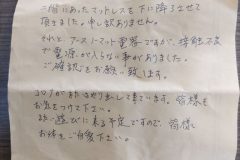 二階にあったマットレスを下に降ろさせて
頂きました。申し訳ありません。
それと アースノーマット電器ですが、接触不良
で電源が入らない事がありました。
ご確認をお願い致します。
コロナがまたはやり出して来ています。皆様も
お気をつけて下さい。
また、遊びに来る予定ですので、皆様に
お体をご自愛下さい。